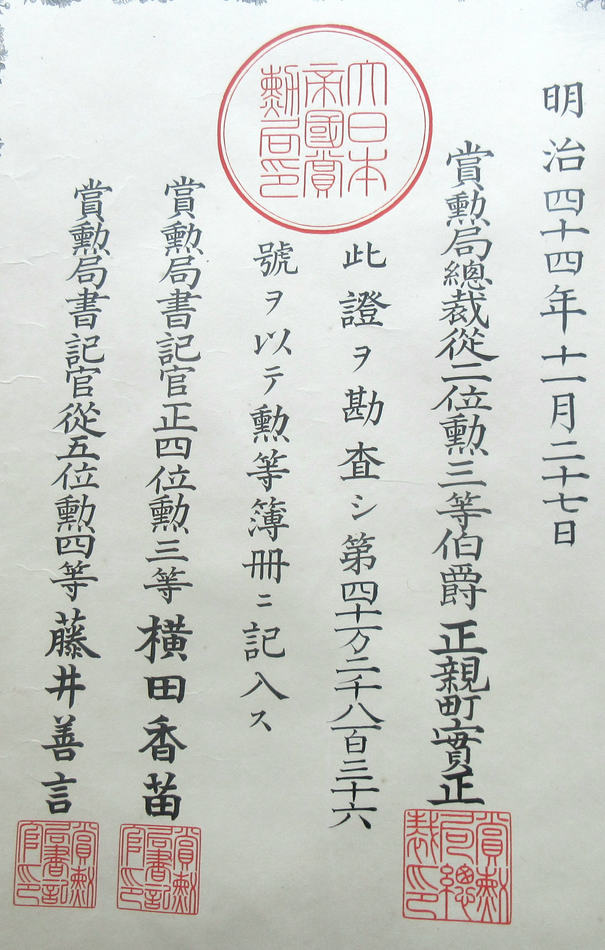 明治四十四年十一月二十七日
賞勲局總裁從二位勲三等伯爵正親町實正
賞勲局總裁印
大日本帝國賞勲局印
此證ヲ勘査シ第四十万二千八百三十六
號ヲ以テ勲等簿冊ニ記入ス
賞勲局書記官正四位勲三等横田香苗
賞勲局書記官印
賞勲局書記官從五位勲四等藤井善言
賞勲局書記官印